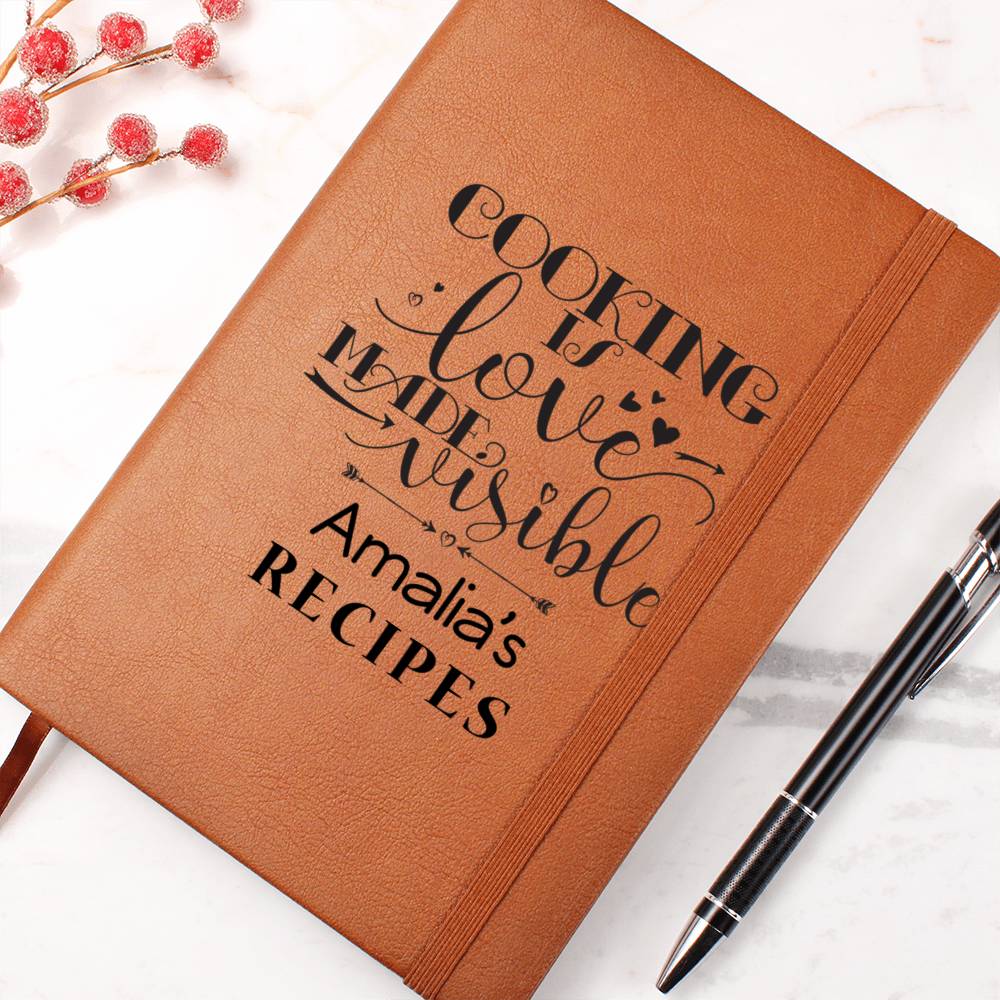 COOKING
IS
love
MADE
visible
Amalia's
RECIPES